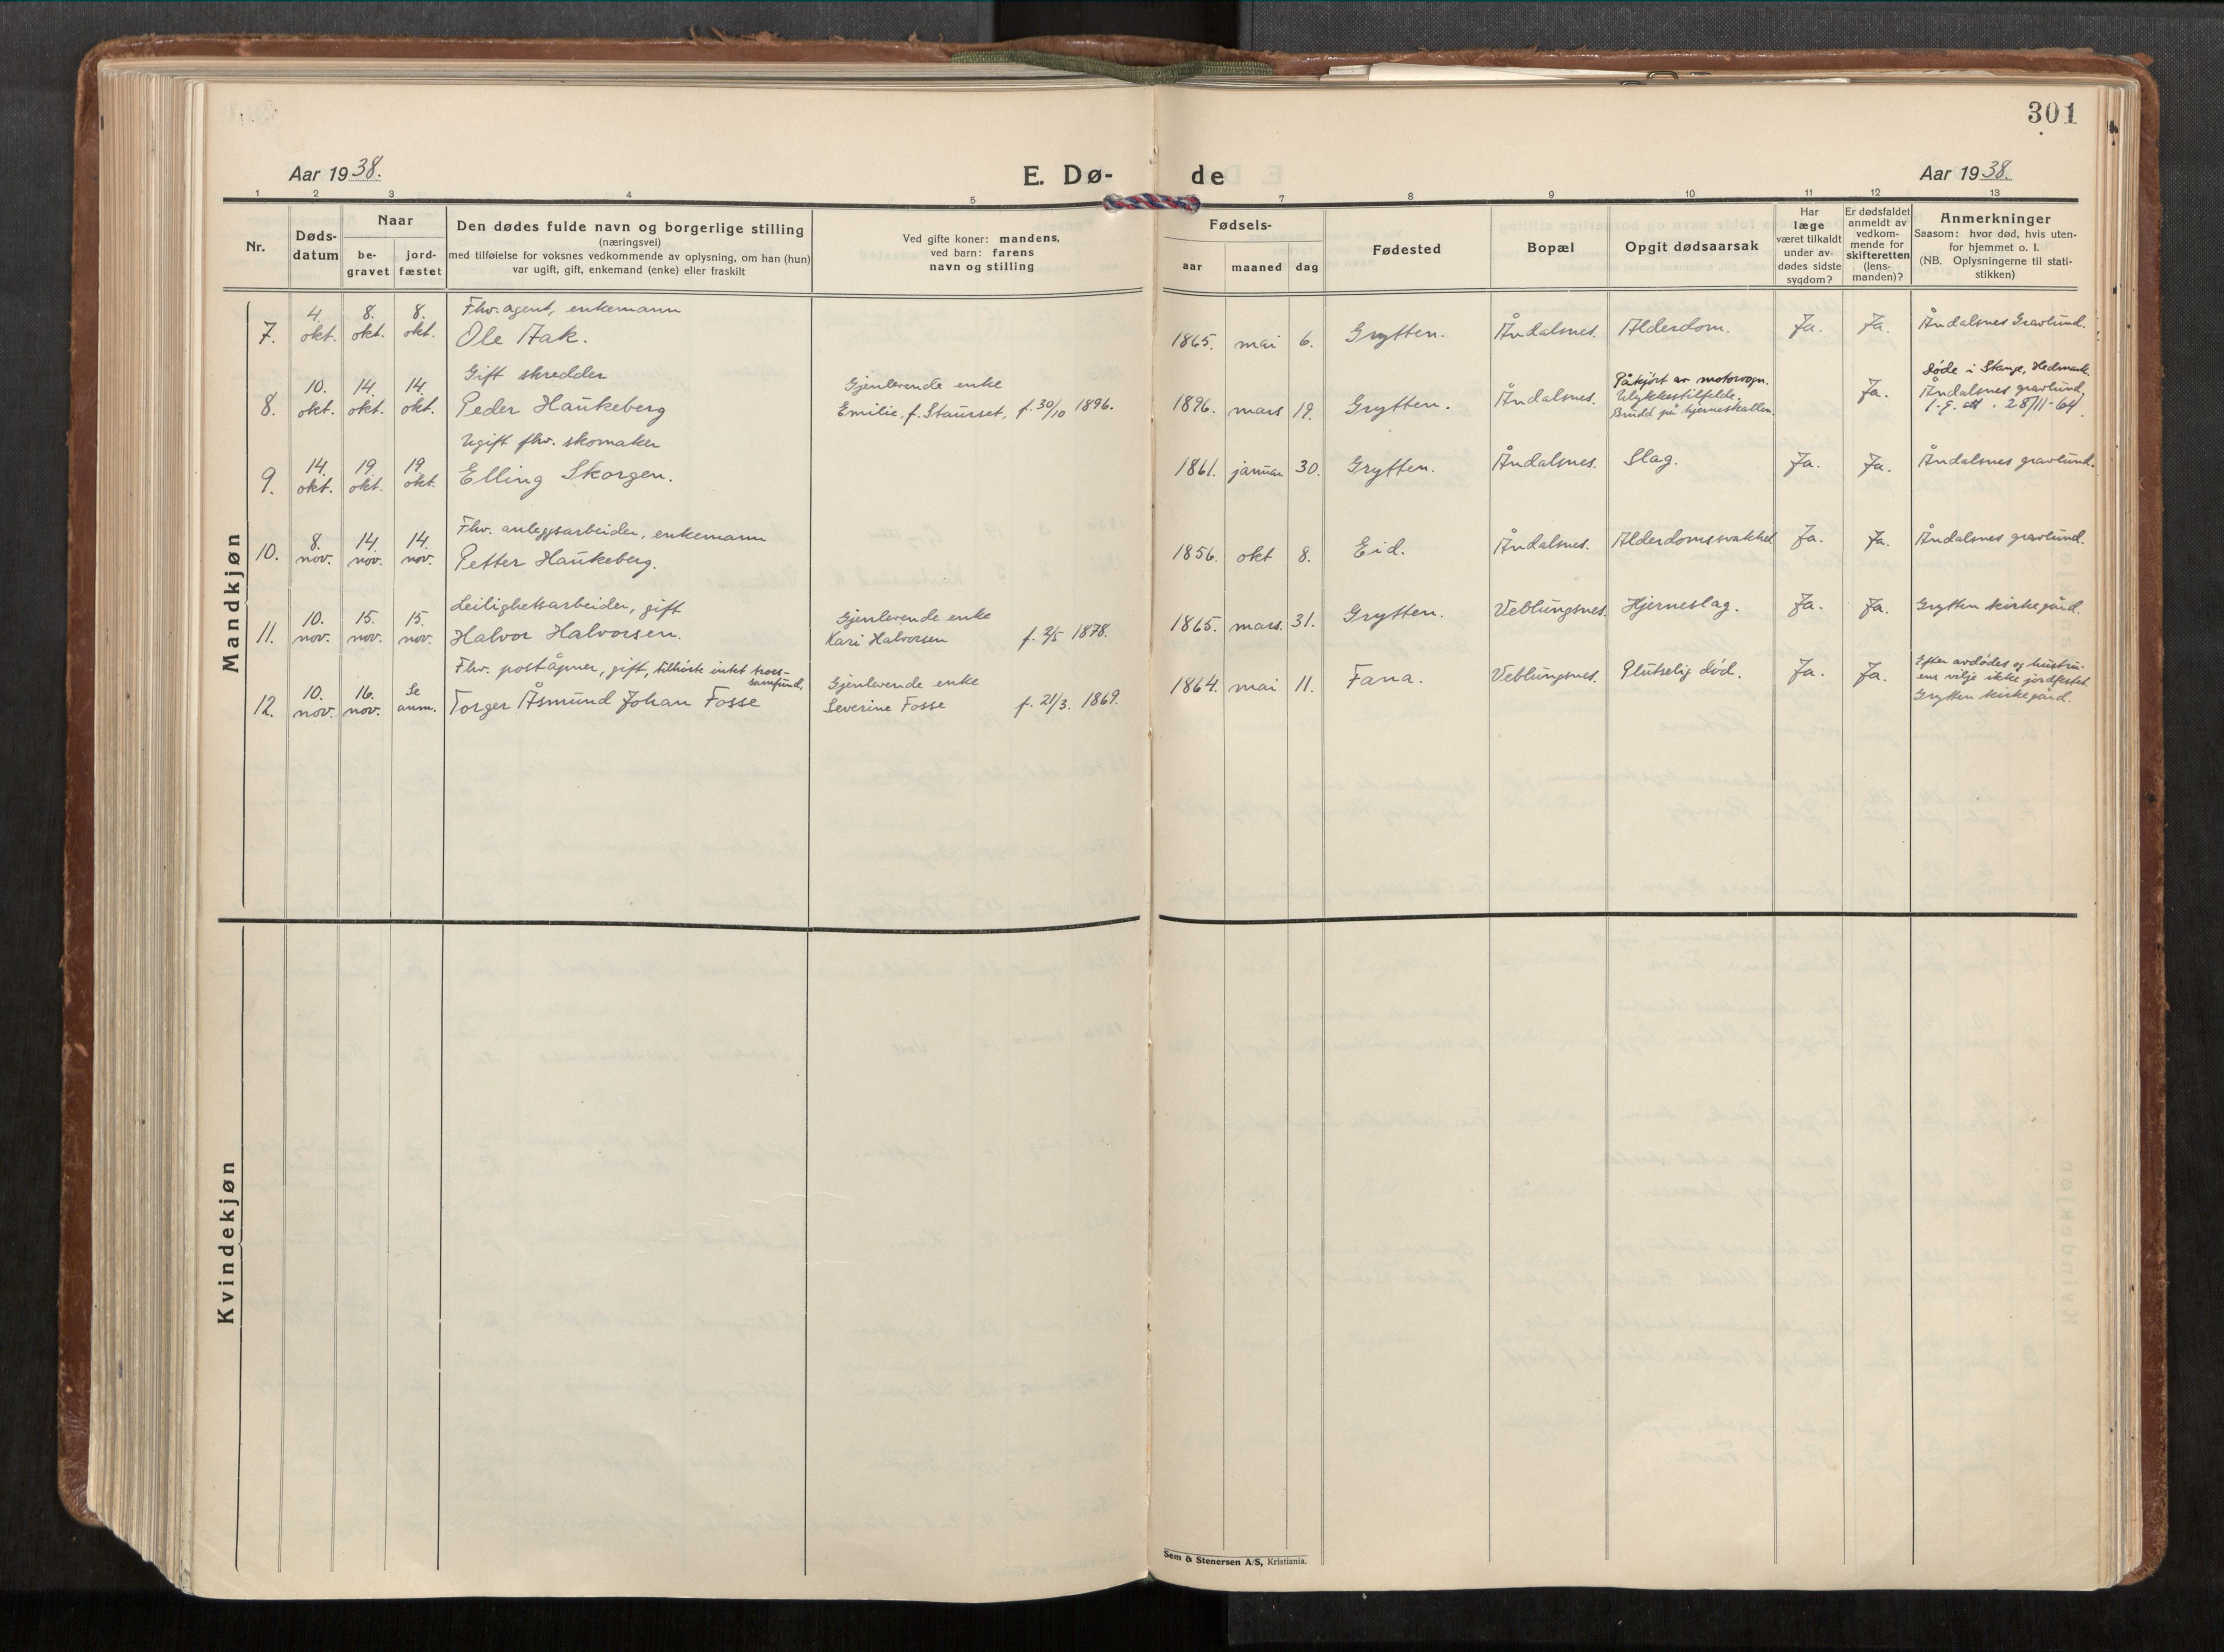 301
Aar 1938.
E. Dø-
de
Aar 1938.
1 2 3 4 5 7 8 9 10 11 12 13
Nr.
Døds-
datum
Naar
be-
gravet
jord-
fæstet
Den dødes fulde navn og borgerlige stilling
(næringsvei)
med tilføielse for voksnes vedkommende av oplysning, om han (hun)
var ugift, gift, enkemand (enke) eller fraskilt
Ved gifte koner: mandens,
ved barn: farens
navn og stilling
Fødsels-
aar maaned dag
Fødested
Bopæl
Opgit dødsaarsak
Har
læge
været tilkaldt
under av-
dødes sidste
sygdom?
Er dødsfaldet
anmeldt av
vedkom-
mende for
skifteretten
(lens-
manden)?
Anmerkninger
Saasom: hvor død, hvis uten-
for hjemmet o. l.
(NB. Oplysningerne til stati-
stikken)
Mandkjøn
7.
4. okt.
8. okt.
8. okt.
Fhv. agent, enkemann
Ole Aak.
1865. mai 6.
Grytten.
Åndalsnes.
Alderdom.
Ja.
Ja.
Åndalsnes Gravlund.
8.
10. okt.
14. okt.
14. okt.
Gift skredder
Peder Haukeberg
Gjenlevende enke
Emilie, f. Staurset, f. 30/10 1896.
1896. mars 19.
Grytten.
Åndalsnes.
Påkjørt av motorvogn.
Ulykkestilfelde.
Brudd på hjerneskallen.
Ja.
Døde i Stange, Hedmark.
Åndalsnes gravlund,
28/11-64.
9.
14. okt.
19. okt.
19. okt.
Ugift fhv. skomaker
Elling Skorgen.
1861. januar 30.
Grytten.
Åndalsnes.
Slag.
Ja.
Ja.
Åndalsnes gravlund.
10.
8. nov.
14. nov.
14. nov.
Fhv. anleggsarbeider, enkemann
Petter Haukeberg.
1856. okt 8.
Eid.
Åndalsnes.
Alderdomssvakhet
Ja.
Ja.
Åndalsnes gravlund.
11.
10. nov.
15. nov.
15. nov.
Leilighetsarbeider, gift
Halvor Halvorsen.
Gjenlevende enke
Kari Halvorsen f. 2/5 1878.
1865. mars. 31.
Grytten.
Veblungsnes.
Hjerneslag.
Ja.
Ja.
Grytten kirkegård.
12.
10. nov.
16. nov.
Se anm.
Fhv. poståpner, gift, tilhørte intet troes-
samfund,
Torger Åsmund Johan Fosse
Gjenlevende enke
Severine Fosse f. 21/3. 1869.
1864. mai 11.
Fana.
Veblungsnes.
Plutselig død.
Ja.
Ja.
Efter avdødes og hustru-
ens vilje ikke jordfestet.
Grytten kirkegård.
Kvindekjøn
Sem & Stenersen A/S, Kristiania.